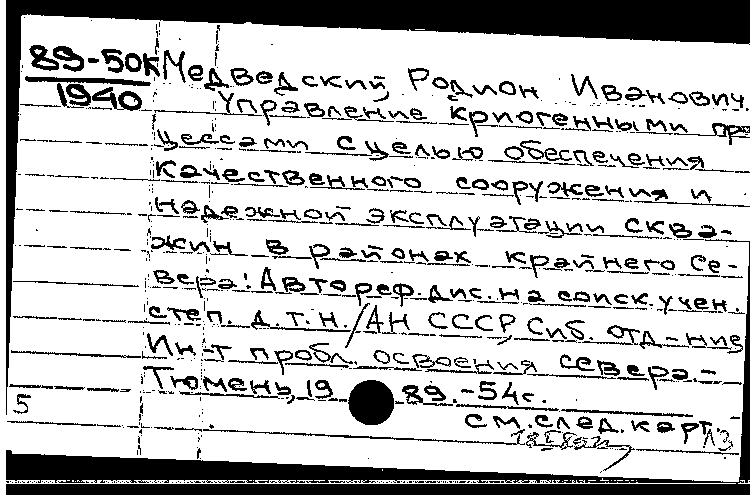 89-50к Медведский Родион Иванович.
1940
Управление криогенными про
цессами с целью обеспечения
качественного сооружения и
надежной эксплуатации сква-
жин в районах крайнего Се-
вера: Автореф. дис. на соиск. учен.
степ. д.т.н. / АН СССР, Сиб. отд-ние,
Ин-т пробл. освоения севера.-
Тюмень, 1989.-54с.
5
см. след. карт.